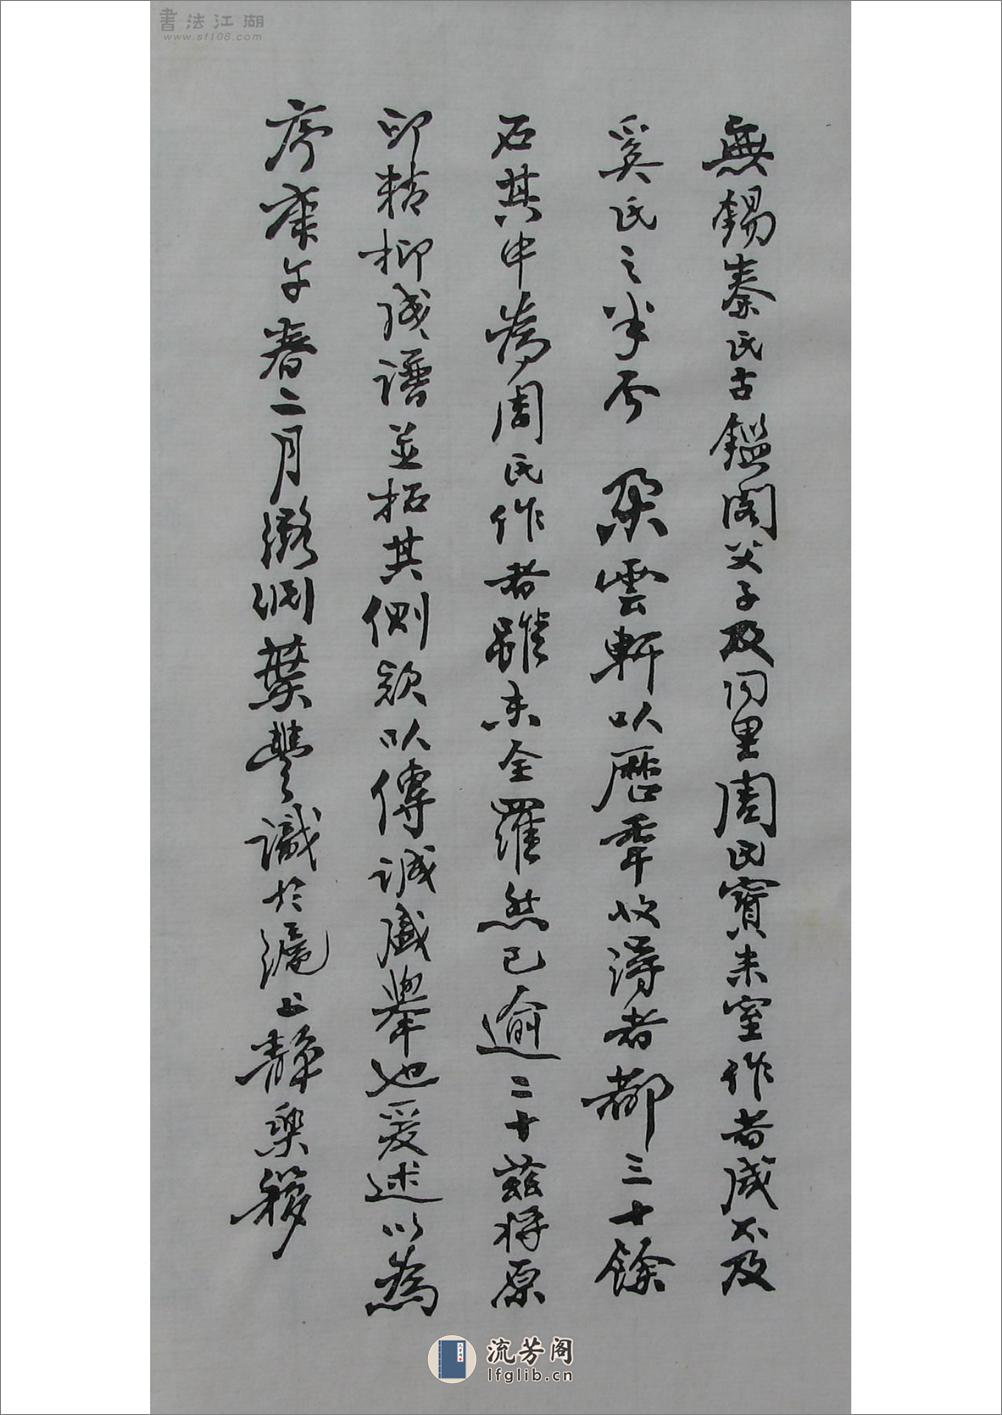 無錫秦氏古鑑閣父子及同里周氏寶米室作者咸不及
奚氏之半爾 朵雲軒以歷年收得者都三十餘
石其中為周氏作者雖未全羅然已逾二十茲將原
印精柳成譜並拓其側款以傳誠盛舉也爰述以為
序庚午春二月徽州葉豐識於滬上靜樂簃
書法江湖
www.sf108.com
流芳阁
lfglib.cn